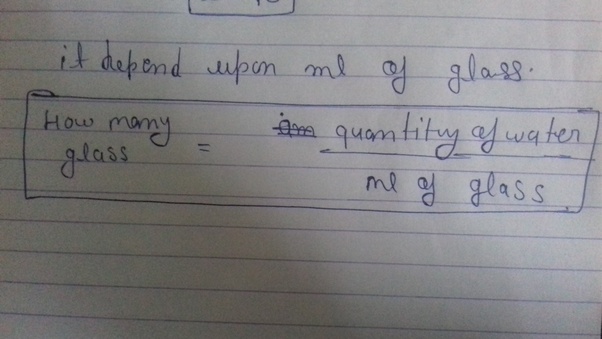 it depend upon ml of glass.
How many
glass
= quantity of water
ml of glass